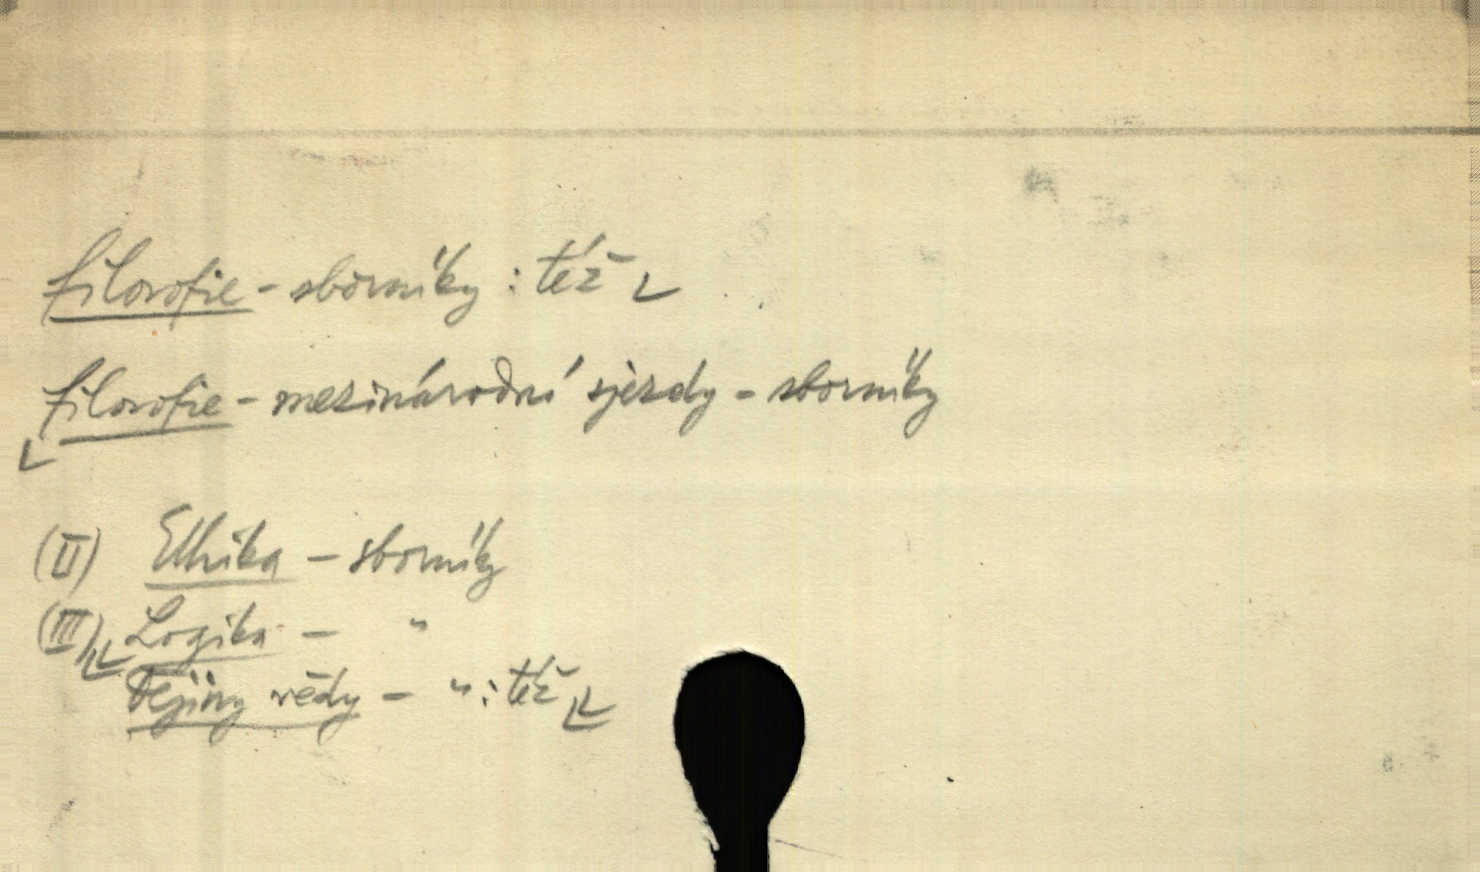 filosofie - sborníky : též
filosofie - mezinárodní sjezdy - sborníky
(II) Ethika - sborníky
(III) Logika - "
Dějiny vědy - " : též